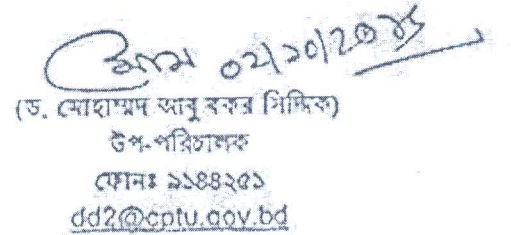 ০২/১০/২০১৬
(ড. মোহাম্মদ আবু বকর সিদ্দিক)
উপ-পরিচালক
ফোনঃ ৯১৪৪২৫১
dd2@cptu.gov.bd